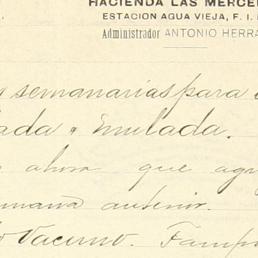 HACIENDA LAS MERCE
ESTACION AGUA VIEJA, F. I.
Administrador ANTONIO HERRA
semanarias para
ada y mulada.
ahora que ag
mana anterior.
Vacuno. Tampo